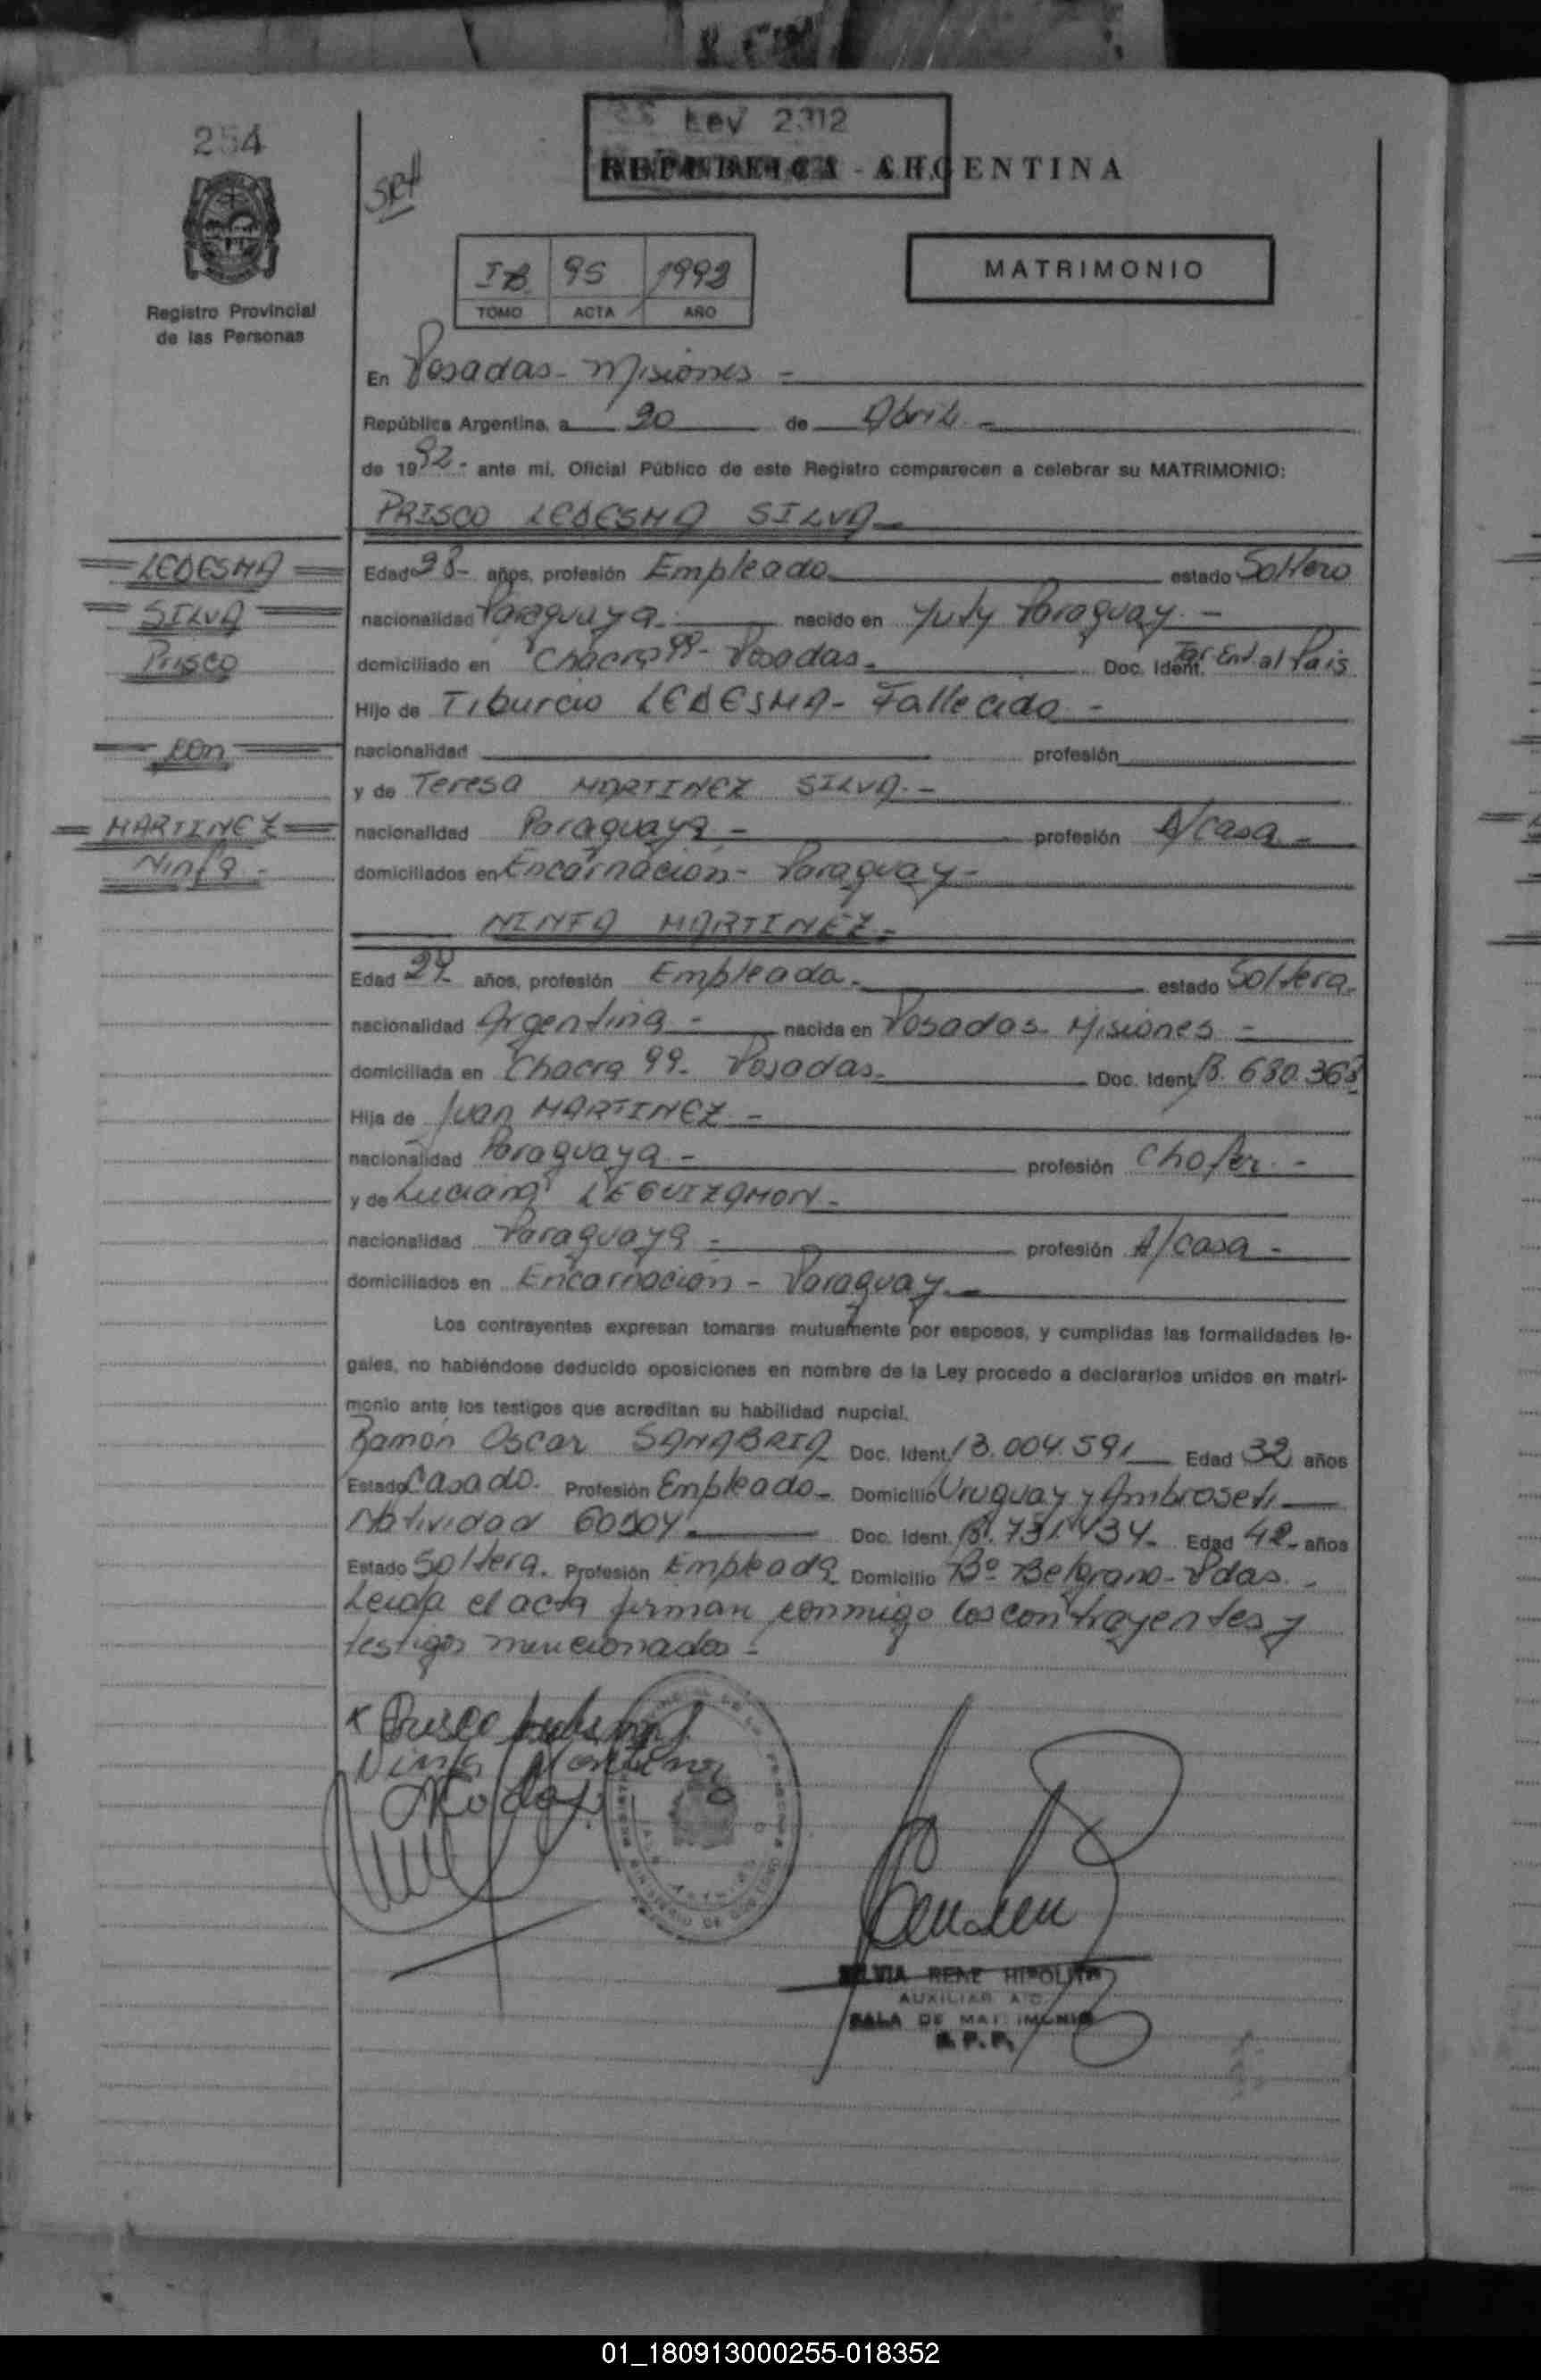 254
Ley 2312
REPUBLICA ARGENTINA
SRH
Registro Provincial
de las Personas
IB 95 1992
TOMO ACTA AÑO
MATRIMONIO
En Posadas - Misiones -
República Argentina, a 20 de Abril -
de 1992 - ante mi, Oficial Público de este Registro comparecen a celebrar su MATRIMONIO:
PRISCO LEDESMA SILVA -
LEDESMA
SILVA
Prisco
con
MARTINEZ
Ninfa -
Edad 38 - años, profesión Empleado estado Soltero
nacionalidad Paraguaya. nacido en Yuty Paraguay. -
domiciliado en Chacra 99 - Posadas. Doc. Ident. Tar. Ent. al Pais
Hijo de Tiburcio LEDESMA - Fallecido -
nacionalidad profesión
y de Teresa MARTINEZ SILVA. -
nacionalidad Paraguaya - profesión A/casa -
domiciliados en Encarnación - Paraguay -
NINFA MARTINEZ -
Edad 24 - años, profesión Empleada - estado Soltera.
nacionalidad Argentina - nacida en Posadas - Misiones -
domiciliada en Chacra 99 - Posadas. Doc. Ident. 18.680.368
Hija de Juan MARTINEZ -
nacionalidad Paraguaya - profesión Chofer. -
y de Luciana LEGUIZAMON -
nacionalidad Paraguaya - profesión A/casa -
domiciliados en Encarnación - Paraguay. -
Los contrayentes expresan tomarse mutuamente por esposos, y cumplidas las formalidades le-
gales, no habiéndose deducido oposiciones en nombre de la Ley procedo a declararlos unidos en matri-
monio ante los testigos que acreditan su habilidad nupcial.
Ramón Oscar SANABRIA Doc. Ident. 13.004.591 Edad 32 años
Estado Casado. Profesión Empleado - Domicilio Uruguay y Ambroseti
Natividad GODOY. Doc. Ident. 731434 - Edad 42 - años
Estado Soltera. Profesión Empleada Domicilio Bº Belgrano - Pdas. -
Leida el acta firman conmigo los contrayentes y
testigos mencionados -
x Prisco Ledesma
Ninfa Martinez
NGodoy
SILVIA RENE HIPOLITO
AUXILIAR
SALA DE MATRIMONIO
R.P.P.
01_180913000255-018352